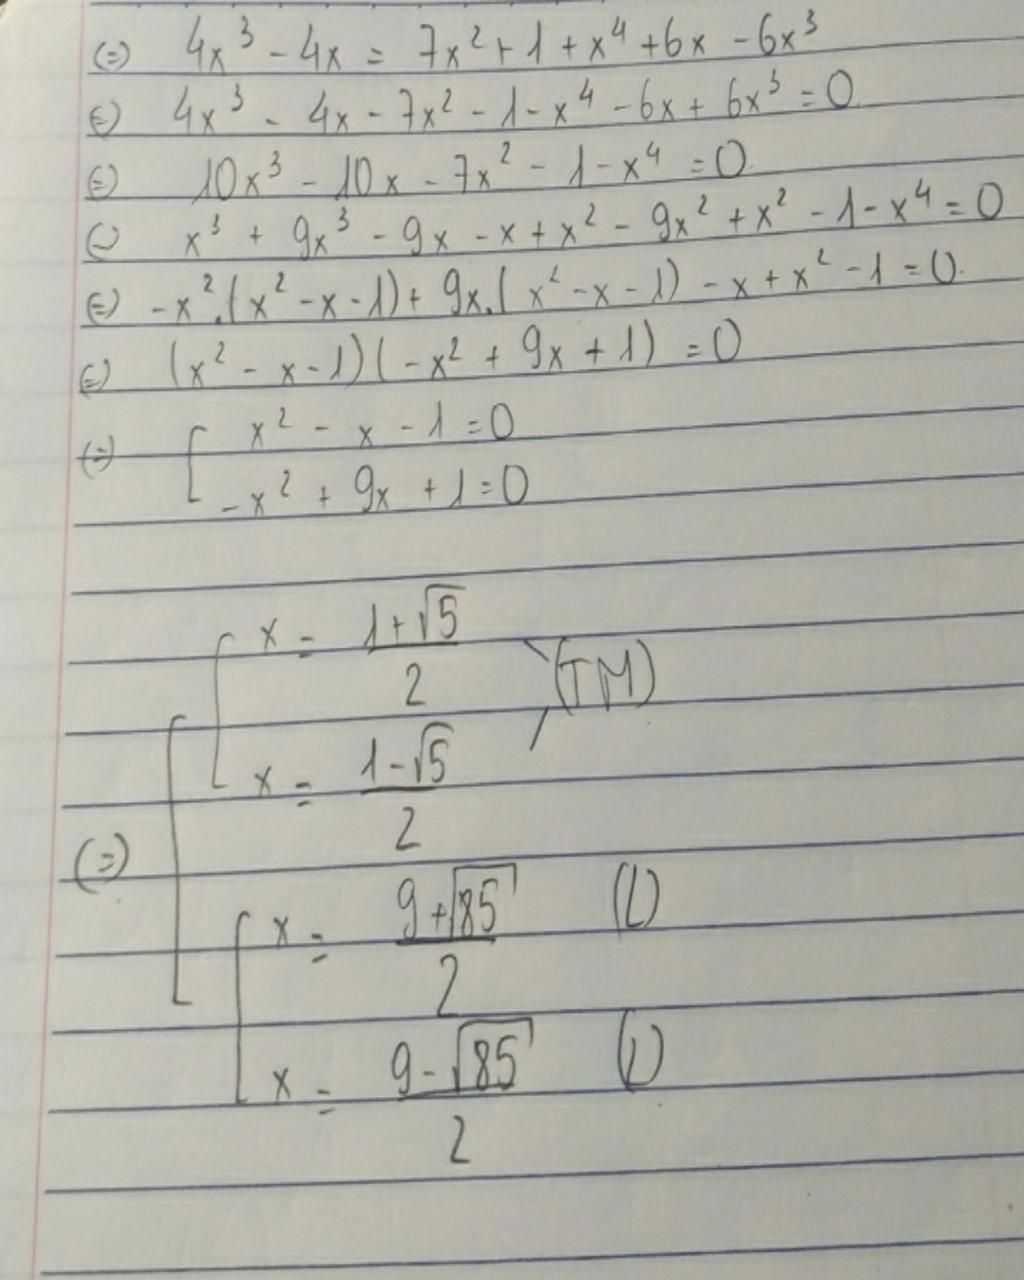 (=) 4x³ - 4x = 7x² + 1 + x⁴ + 6x - 6x³
(=) 4x³ - 4x - 7x² - 1 - x⁴ - 6x + 6x³ = 0
(=) 10x³ - 10x - 7x² - 1 - x⁴ = 0
(=) x³ + 9x³ - 9x - x + x² - 9x² + x² - 1 - x⁴ = 0
(=) -x².(x² - x - 1) + 9x.(x² - x - 1) - x + x² - 1 = 0.
(=) (x² - x - 1)(-x² + 9x + 1) = 0
(=) [ x² - x - 1 = 0
-x² + 9x + 1 = 0
(=) [ [ x = (1+√5)/2
x = (1-√5)/2 (TM)
[ x = (9+√85)/2 (L)
x = (9-√85)/2 (L)